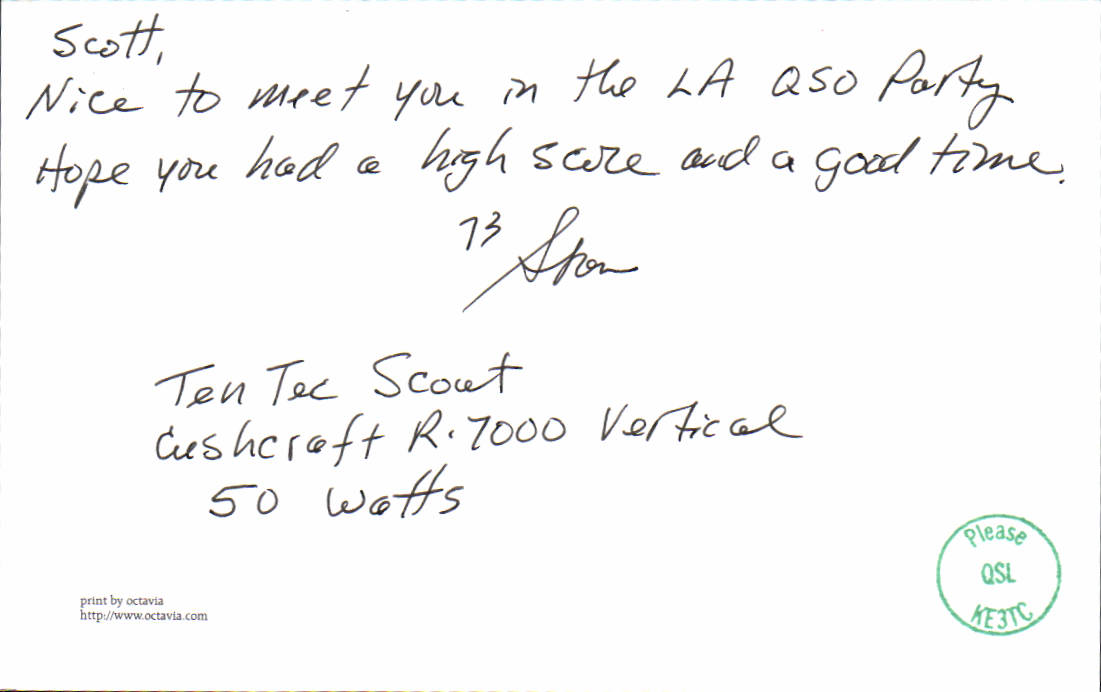 Scott,
Nice to meet you in the LA QSO Party
Hope you had a high score and a good time.
73
Ten Tec Scout
Cushcraft R.7000 Vertical
50 Watts
Please
QSL
KE3TC
print by octavia
http://www.octavia.com